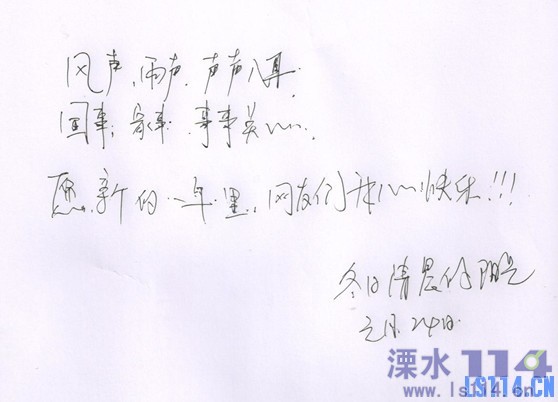 风声、雨声、声声入耳.
国事、家事、事事关心.
愿新的一年里,网友们开心快乐!!!
冬日清晨的阳光
元月24日.
溧水114
www.ls114.cn
LS114.CN